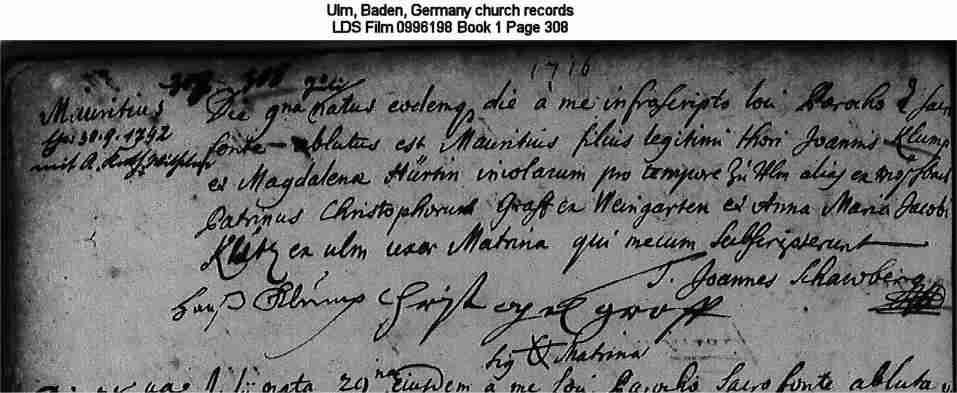 Ulm, Baden, Germany church records
LDS Film 0996198 Book 1 Page 308
1716
Mauritius
30.9.1742
mit A.
Die natus eodemq die à me infrascripto loci Parocho
fonte ablutus est Mauritius filius legitimi thori Joannis Klump
ex Magdalena Hürtin incolarum pro tempore zu Ulm alias ex
Patrinus Christophorus Graff ex Weingarten et Anna Maria Jacobi
ex ulm uxor Matrina qui mecum subscripserunt
Joannes Schawberg
Hanß Klump Christ groff
sig Matrina
nata 29na ejusdem à me loci Parocho sacro fonte abluta